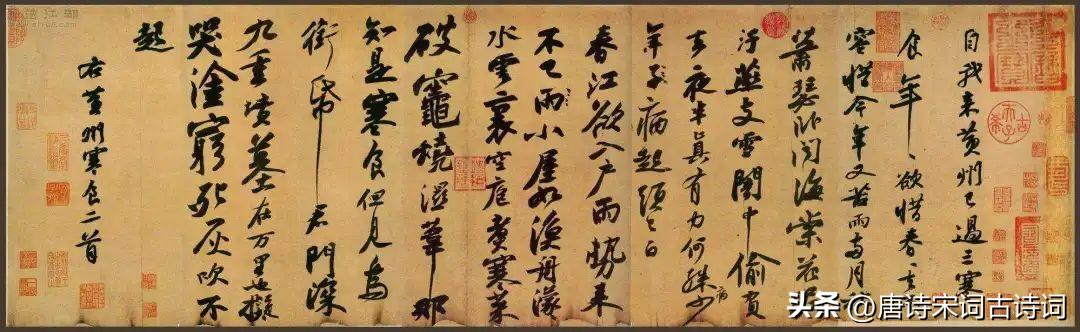 自我來黃州已過三寒
食年、欲惜春、去
容惜今年又苦雨兩月
蕭瑟卧聞海棠花
汙燕支雪闇中偷負
去夜半真有力何殊病少
年子病起頭已白
春江欲入戶雨勢來
不已雨小屋如漁舟濛
水雲裏空庖煮寒菜
破竈燒濕葦那
知是寒食但見烏
銜帋君門深
九重墳墓在万里也擬
哭塗窮死灰吹不
起
右黃州寒食二首
头条 @唐诗宋词古诗词